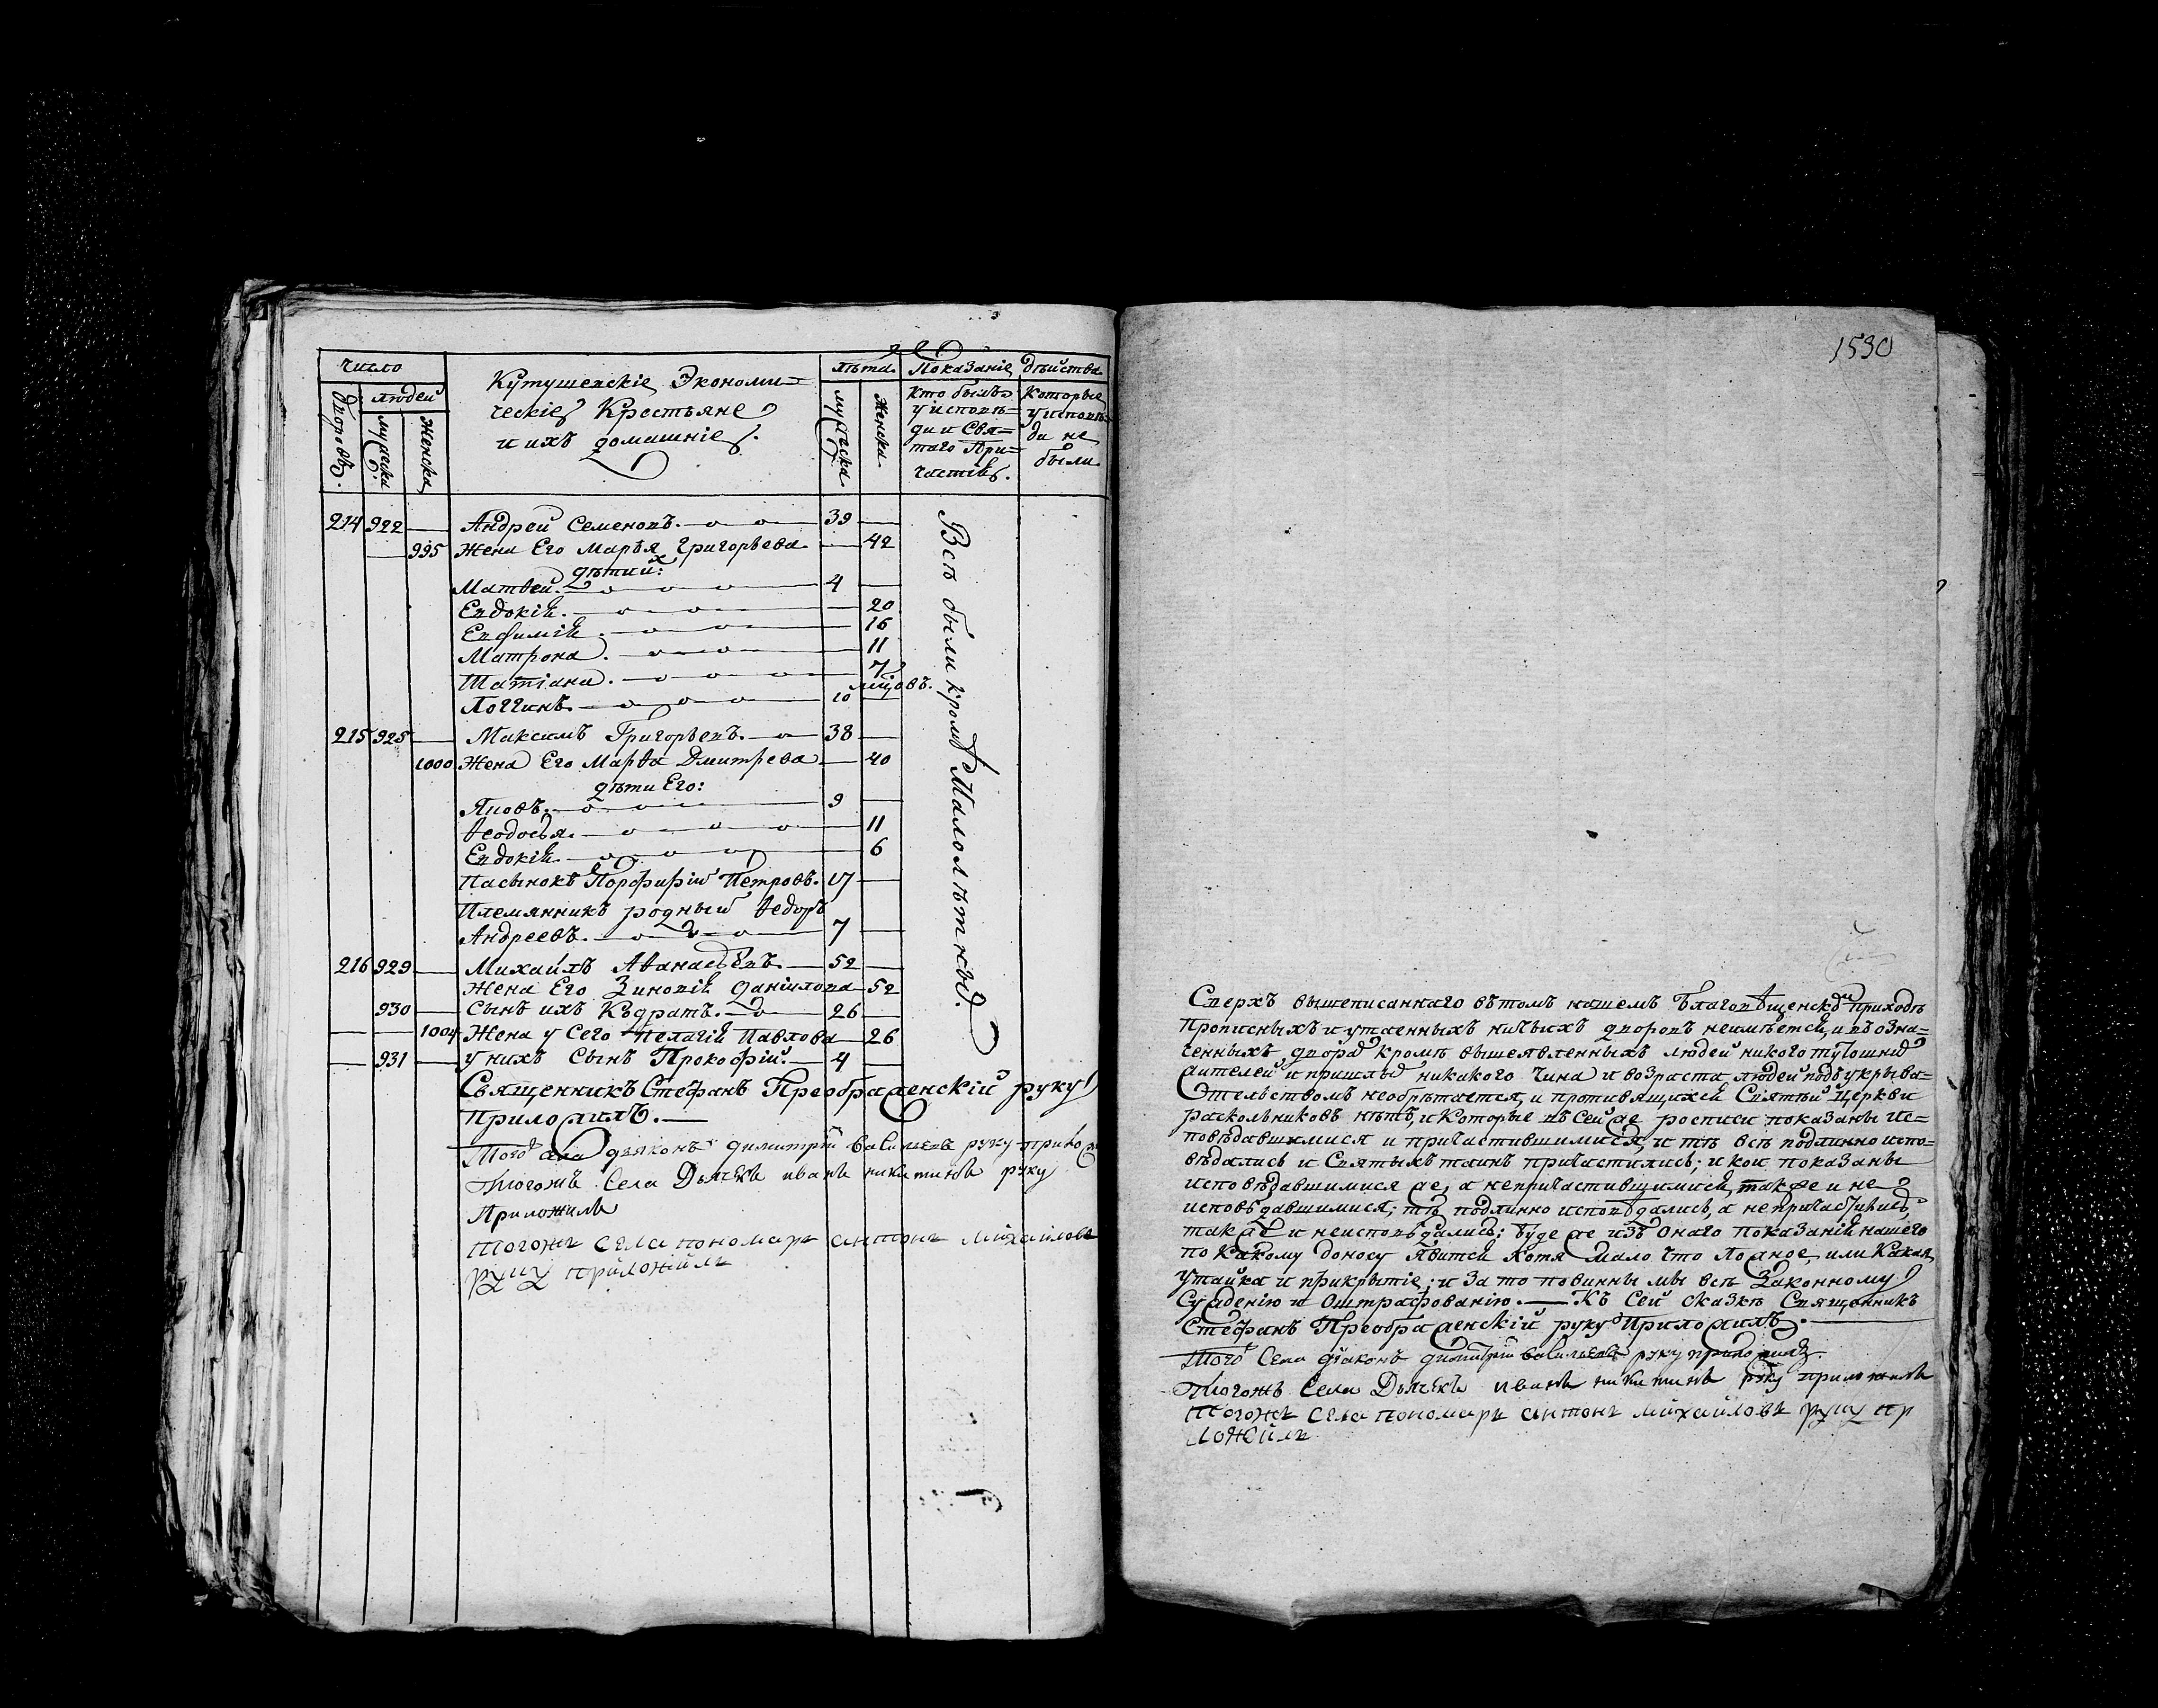 число
людей
дворовъ.
мужеска
женска
Кутушевскіе Экономи=
ческіе Крестьяне
и ихъ домашніе.
лѣта
мужеска
женска.
Показаніе дѣйства
кто былъ
у исповѣ=
ди и Свя=
таго При=
частія.
Которые
у исповѣ=
ди не
были
214 922 — Андрей Семеновъ. 39 —
— 995 Жена Его Марья Григорьева. — 42
дѣти их:
Матѳей. 4 —
Евдокія. — 20
Евфимія. — 16
Матрона. — 11
Татіана. — 7
мцовъ.
Логгинъ. 10 —
215 925 — Максимъ Григорьевъ. 38 —
1000 Жена Его Марѳа Дмитрева — 40
дѣти Его:
Яковъ. 9 —
Ѳеодосья. — 11
Евдокія. — 6
Пасынокъ Порфирій Петровъ. 17 —
Племянникъ родный Ѳедоръ
Андреевъ. 7 —
216 929 — Михайлъ Аѳанасьевъ. — 52 —
Жена Его Зиновія Даніилова — 52
930 — Сынъ ихъ Кѡдратъ. 26 —
— — 1004 Жена у Сего Пелагія Павлова — 26
— 931 — у нихъ сынъ Прокофій. — 4 —
Всѣ были кромѣ Малолѣтныхъ.
Священникъ Стефанъ Преображенскій руку
приложилъ. —
Того села дьяконъ димитрій васильевъ руку
Тогожъ Села Дьячекъ иванъ никитинъ руку
Приложилъ
тогожъ села пономарь антонъ михаиловъ
руку приложилъ
1530
Сверхъ вышеписаннаго вѣтомъ нашемъ Благовѣщенскомъ приходѣ
прописныхъ и утаенныхъ ничьихъ дворовъ неимѣется, и въ озна=
ченныхъ двора кромѣ вышеявленныхъ людей никого тутошних
жителей и пришлых никакого чина и возраста людей подъ укрыва=
тельствомъ необрѣтается, и противящихся Святѣй Церкви
раскольниковъ нѣтъ, и Которые въ Сей же росписи показаны ис=
повѣдавшимися и причастившимися, и тѣ всѣ подлинно испо=
вѣдались и Святыхъ таинъ причастились; и кои показаны
исповѣдавшимися же, а непричастившимися, также и не
исповѣдавшимися; тѣ подлинно исповѣдались, а непричастились,
так же и неисповѣдались; буде же изъ Онаго показанія нашего
по какому доносу явится хотя мало что ложное, или Какая
утайка и прикрытіе; и за то повинны мы всѣ Законному
Сужденію и Оштрафованію. — Къ Сей сказкѣ Священникъ
Стефанъ Преображенскій руку Приложилъ. —
Того Села дьяконъ димитрій васильевъ руку приложилъ.
Тогожъ Села Дьячекъ иванъ никитинъ руку приложилъ
Тогожъ села пономарь антонъ михайловъ руку пр
ложилъ